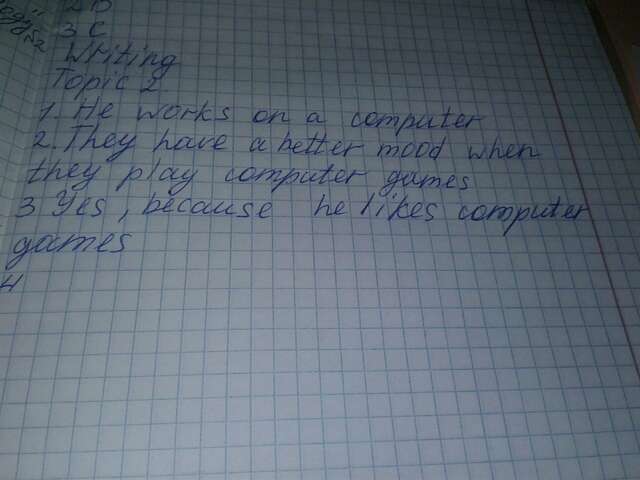 2 B
3 C
Writing
Topic 2
1. He works on a computer
2. They have a better mood when
they play computer games
3 Yes, because he likes computer
games
4